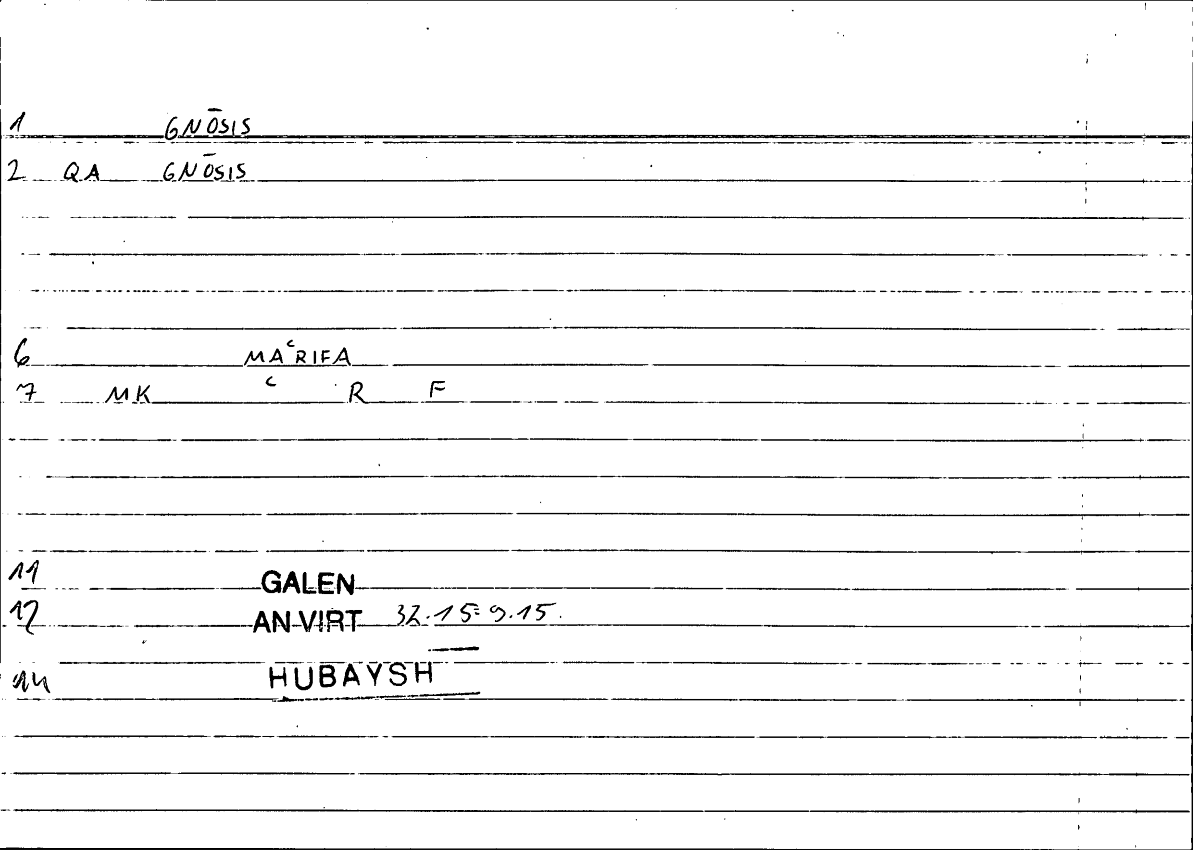 1 GNŌSIS
2 QA GNŌSIS
6 MAᶜRIFA
7 MK ᶜ R F
11 GALEN
12 AN.VIRT 32.15=9.15.
14 HUBAYSH